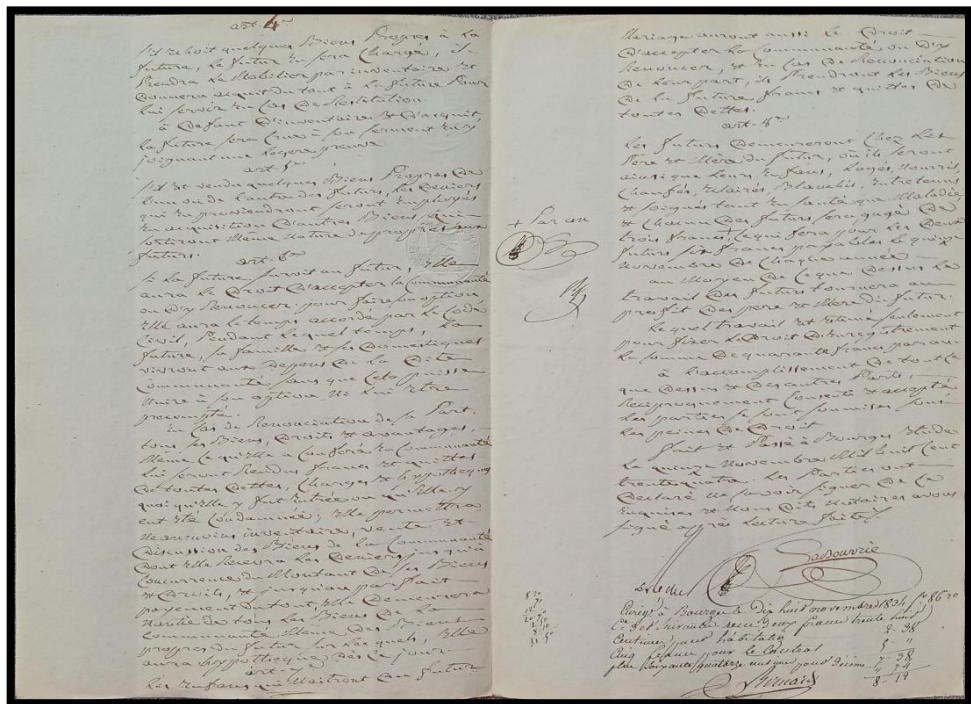 art. 4e
S'il échoit quelques Biens Propres à la
future, le futur en sera Chargé, il
Prendra le Mobilier par inventaire et
Donnera acquit du tout à la future Pour
lui servir en Cas de Restitution.
à Défaut D'inventaire et D'acquit,
la future sera Crue à son serment en y
joignant une légère preuve
art. 5e
S'il est vendu quelques Biens Propres De
l'un ou de l'autre des futurs, les Deniers
qui en proviendront seront Employés
en acquisition D'autres Biens qui
sortiront Même Nature de propres aux
futurs.
art. 6e
Si la future survit au futur, Elle
aura le Droit D'accepter la Communauté
ou D'y Renoncer. pour faire son option
Elle aura le temps accordé par le Code
Civil, Pendant lequel temps, la
future, sa famille et ses Domestiques
vivront aux Dépens De la Dite
Communauté sans que Cela puisse
Nuire à son option Ni lui Etre
precompté.
En Cas de Renonciation de sa Part,
tous ses Biens, Droits et avantages,
Même Ce qu'Elle a Conféré en Communauté
lui seront Rendus francs et quittes
De toutes Dettes, Charges et hypothèques
quoiqu'elle y fut Entrée ou qu'Elle y
eut été Condamnée; Elle permettra
Néanmoins inventaire, vente et
Discussion des Biens de la Communauté
Dont Elle Recevra les Deniers jusqu'à
Concurrence du Montant De ses Biens
et Droits, et jusqu'au parfait
payement Du tout, Elle Demeurera
Nantie de tous les Biens De la
Communauté, Même Des Biens
propres du futur sur lesquels, Elle
aura hypothèque Dès Ce jour.
art.
Les Enfans qui Naîtront Du futur
Mariage auront aussi le Droit
D'accepter la Communauté ou D'y
Renoncer, et en Cas de Renonciation
De leur part, ils Prendront les Biens
De la future francs et quittes De
toutes Dettes.
art. 8e
Les futurs Demeureront Chez les
Père et Mère du futur, où ils seront
ainsi que leurs Enfans, Logés, Nourris,
Chauffés, Eclairés, Blanchis, Entretenus
et soignés tant en santé que Maladie
et Chacun Des futurs sera gagé De
trois francs + Ce qui fera pour les Deux
futurs six francs payables le quinze
Novembre De Chaque année
+ par an
au Moyen De Ce que Dessus le
travail Des futurs tournera au
profit Des père et Mère du futur.
Lequel travail est Estimé seulement
pour fixer le Droit D'Enregistrement
la somme De quarante francs par an.
à l'accomplissement De tout Ce
que Dessus et Des autres Parts,
Réciproquement Consenti et accepté
les parties se sont soumises sous
les peines De Droit
Fait et Passé à Bourges Etude
Le quinze Novembre Mil huit Cent
trente quatre. Les Parties ont
Déclaré Ne savoir signer De Ce
Enquises et Nous Dits Notaires avons
signé après Lecture faite
Enregé à Bourges le dix huit novembre 1834
reçu deux francs trente huit
Centimes pour
Cinq francs pour le
plus Soixante quatorze centimes pour décime
2 - 38
5 - "
7 - 38
" - 74
8 - 12